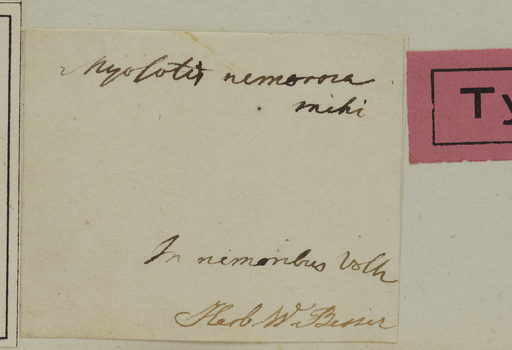 Myosotis nemorosa
mihi
Ty
In nemoribus Volh
Herb. W. Besser